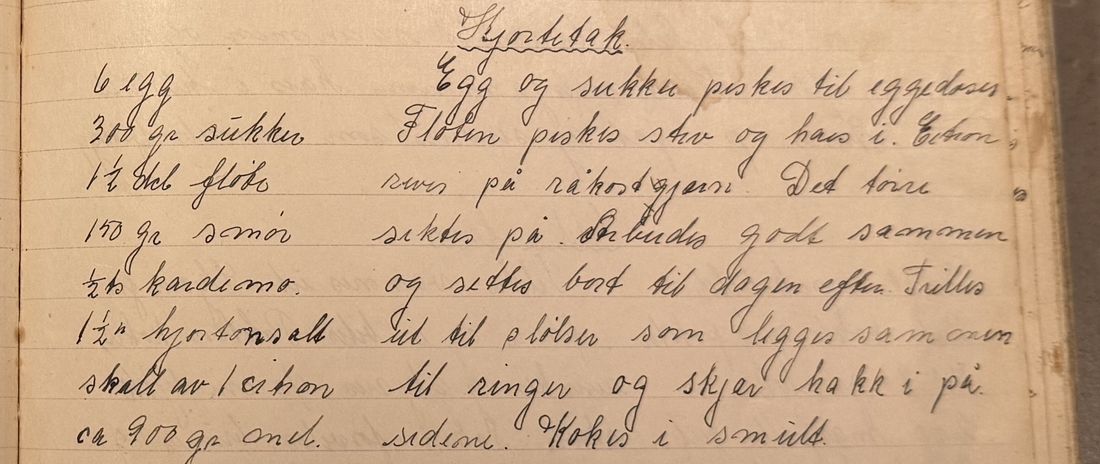 Hjortetak.
6 egg
300 gr sukker
1½ del fløte
150 gr smør
½ ts kardemo.
1½ " hjortonsalt
skall av 1 citron
ca 900 gr mel.
Egg og sukker piskes til eggedosis.
Fløten piskes stiv og haes i. Citron
rives på råkostjern. Det tørre
siktes på. Arbeides godt sammen
og settes bort til dagen efter. Trilles
ut til pølser som legges sammen
til ringer og skjær hakk i på
sidene. Kokes i smult.